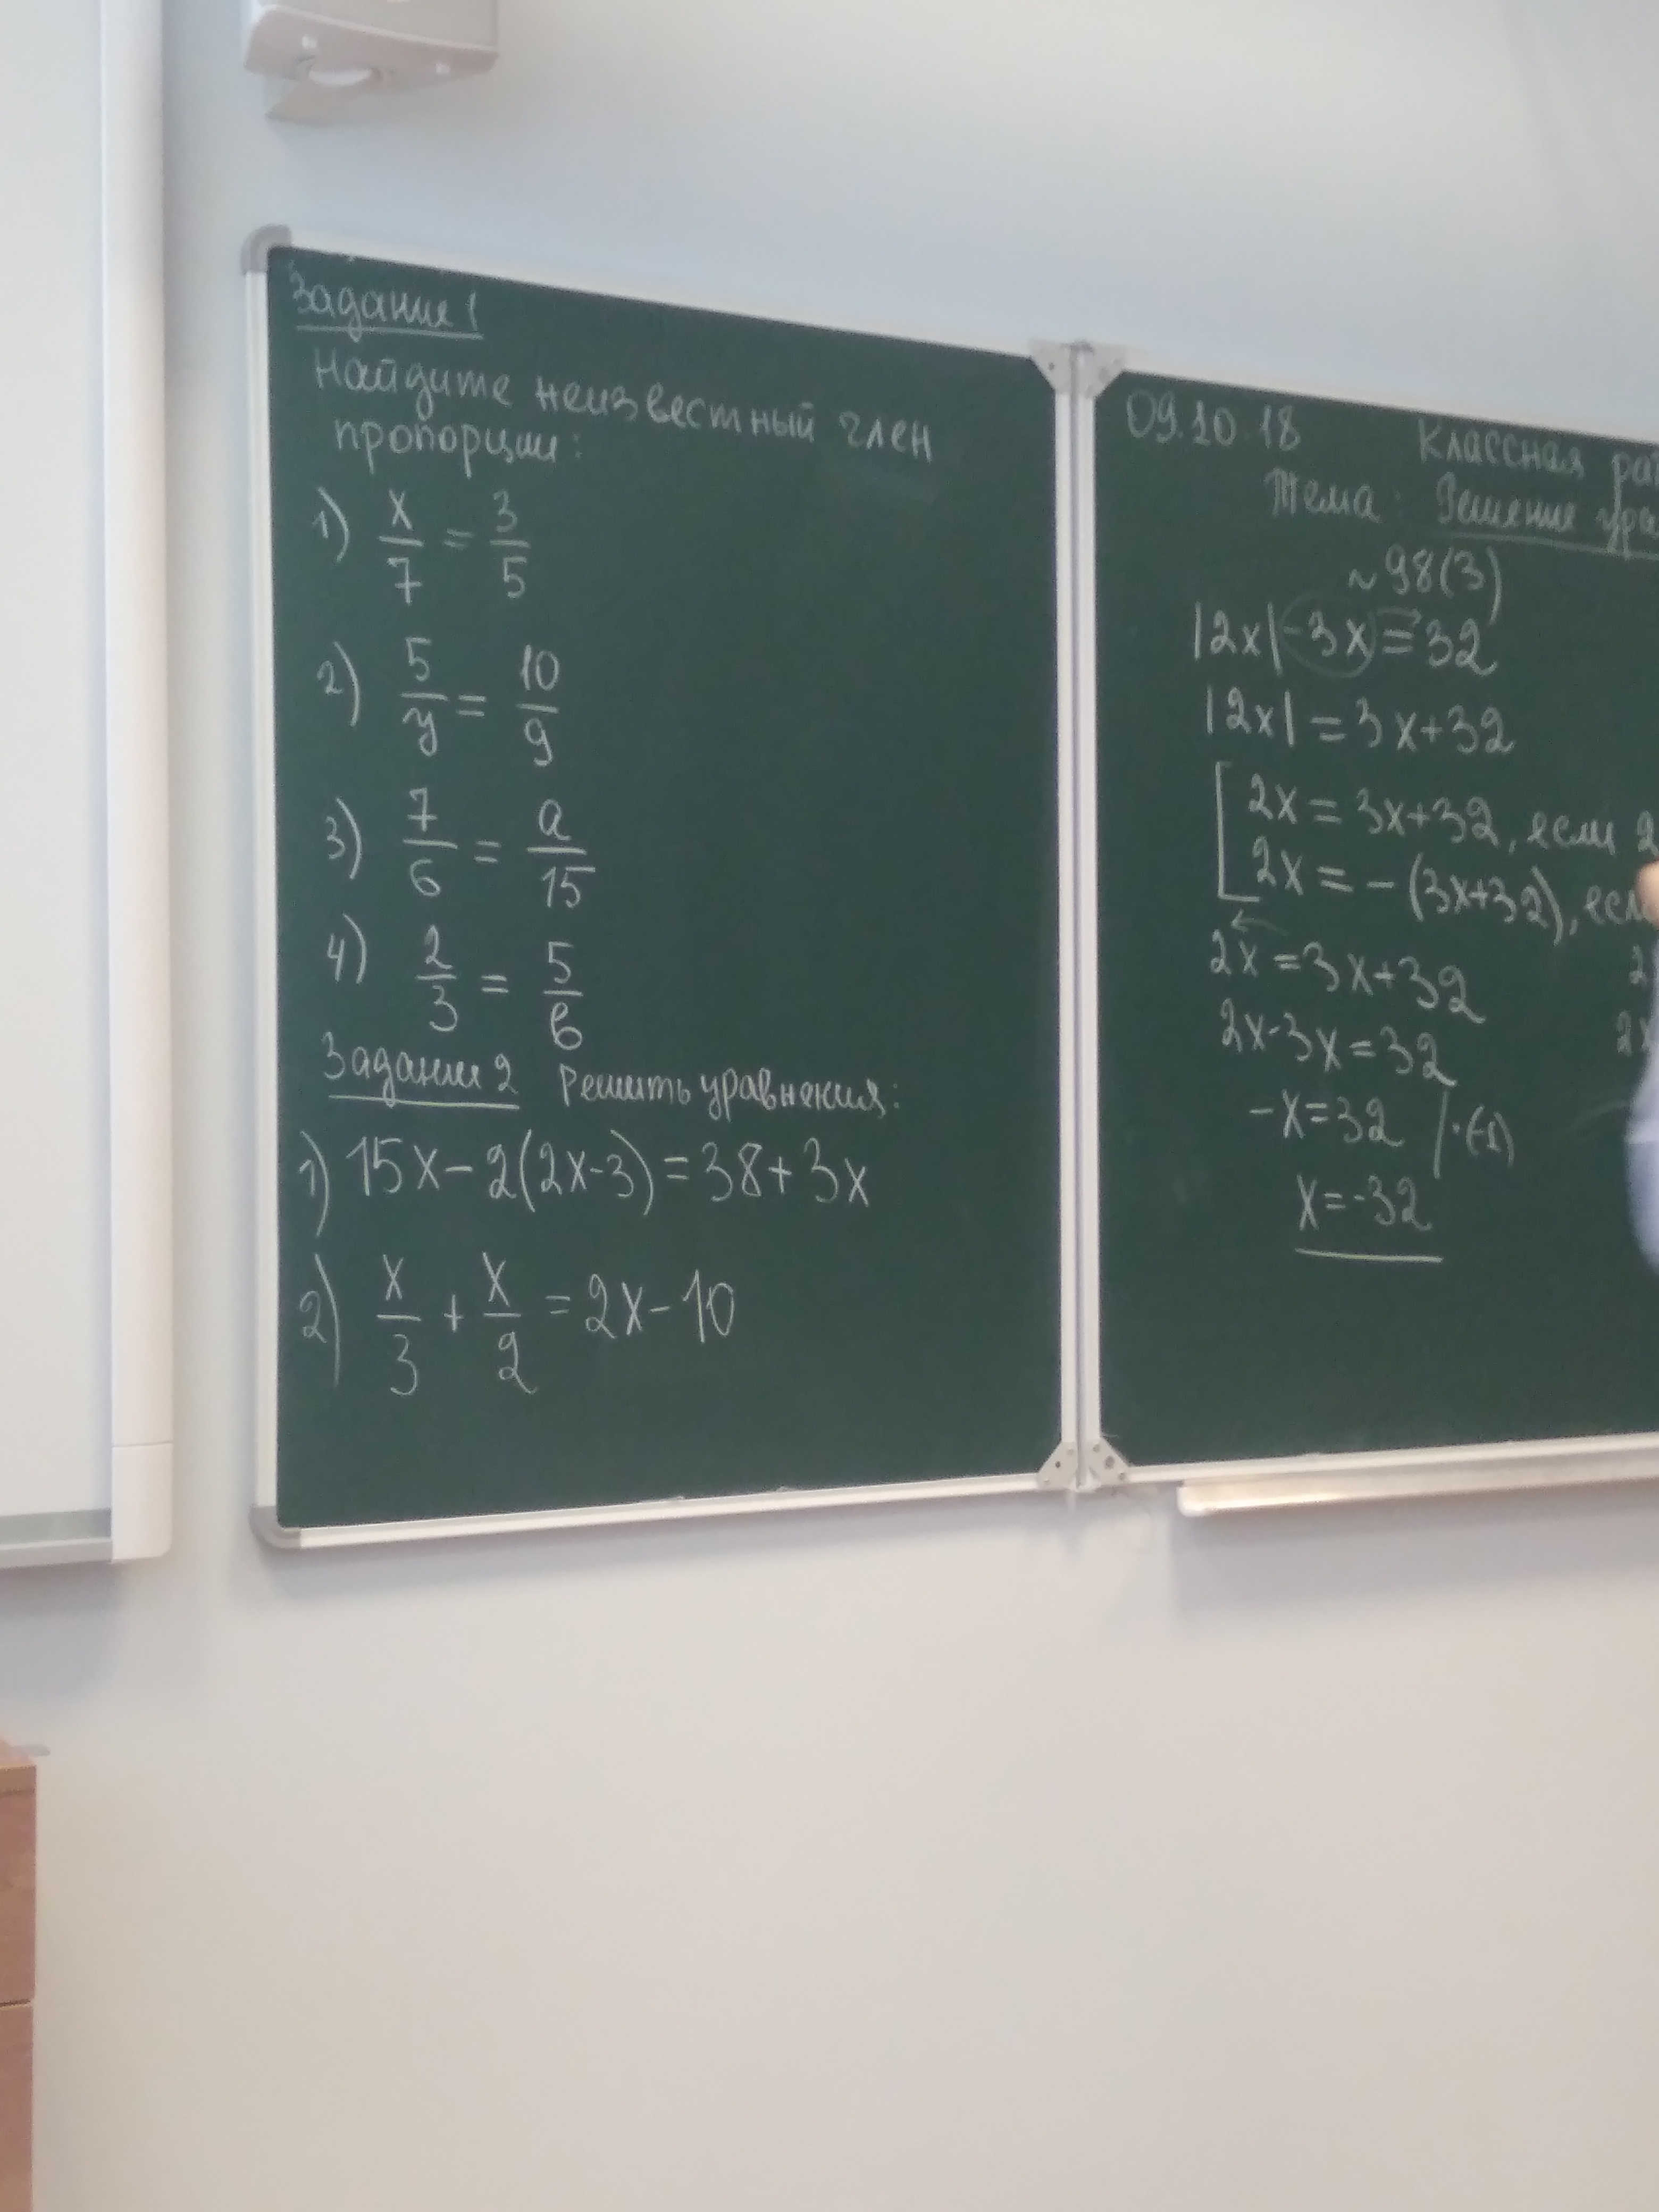 Задание 1
Найдите неизвестный член
пропорции:
1) x/7 = 3/5
2) 5/y = 10/9
3) 7/6 = a/15
4) 2/3 = 5/в
Задание 2 Решить уравнения:
1) 15x - 2(2x-3) = 38 + 3x
2) x/3 + x/2 = 2x - 10
09.10.18 Классная
Тема: Решение
~98(3)
|2x|-3x=32
|2x|=3x+32
2x = 3x+32, если 2
2x = -(3x+32),
2x = 3x+32
2x-3x=32
-x=32 /·(-1)
x=-32